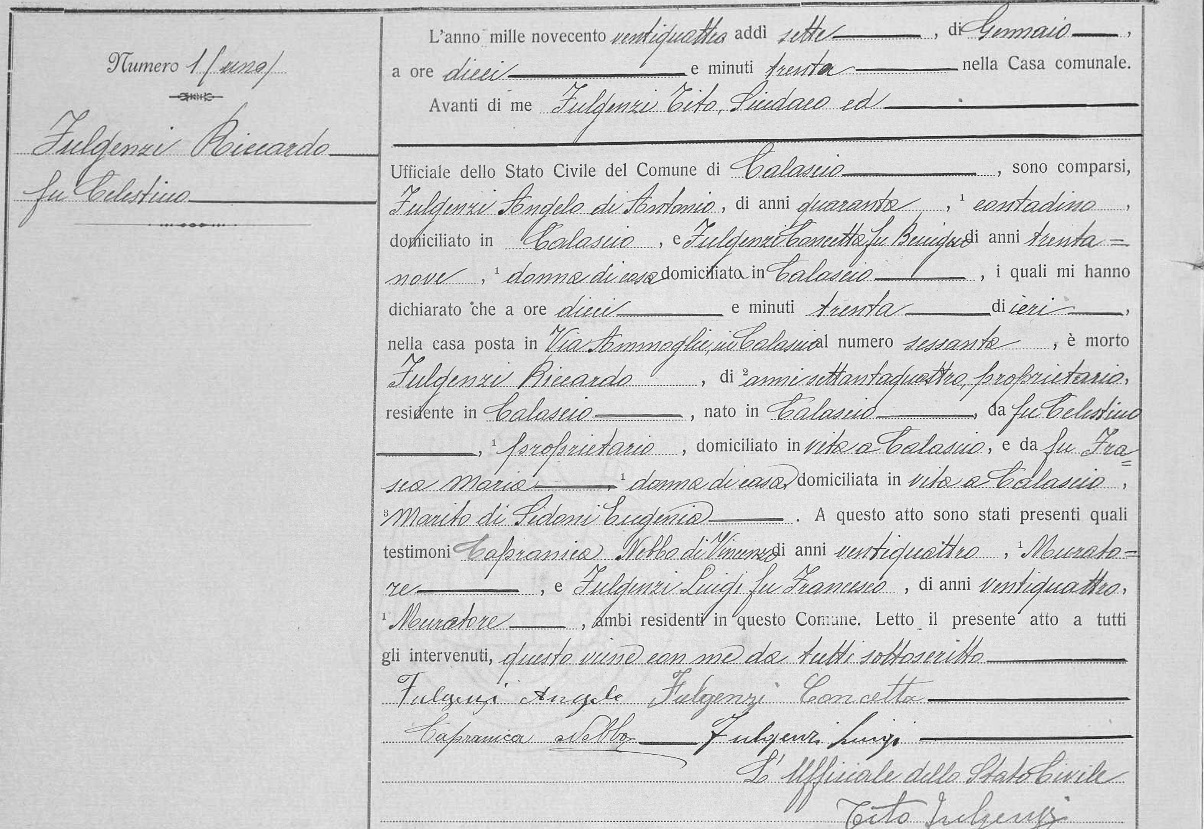 Numero 1 (uno)
Fulgenzi Riccardo
fu Celestino
L'anno mille novecento ventiquattro addì sette, di Gennaio,
a ore dieci e minuti trenta nella Casa comunale.
Avanti di me Fulgenzi Tito, Sindaco ed
Ufficiale dello Stato Civile del Comune di Calascio, sono comparsi,
Fulgenzi Angelo di Antonio, di anni quaranta, ¹ contadino,
domiciliato in Calascio, e Fulgenzi Concetta fu Benigno di anni trenta=
nove, ¹ donna di casa domiciliata in Calascio, i quali mi hanno
dichiarato che a ore dieci e minuti trenta di ieri,
nella casa posta in Via in Calascio al numero sessanta, è morto
Fulgenzi Riccardo, di ² anni settantaquattro, proprietario,
residente in Calascio, nato in Calascio, da fu Celestino
, ¹ proprietario, domiciliato in vita a Calascio, e da fu Fra=
sca Maria ¹ donna di casa, domiciliata in vita a Calascio,
³ Marito di Sidoni Eugenia. A questo atto sono stati presenti quali
testimoni Capranica Nebbo di Vincenzo di anni ventiquattro, ¹ Murato=
re, e Fulgenzi Luigi fu Francesco, di anni ventiquattro,
¹ Muratore, ambi residenti in questo Comune. Letto il presente atto a tutti
gli intervenuti, questo viene con me da tutti sottoscritto
Fulgenzi Angelo Fulgenzi Concetta
Capranica Nebbo Fulgenzi Luigi
L'Ufficiale dello Stato Civile
Tito Fulgenzi